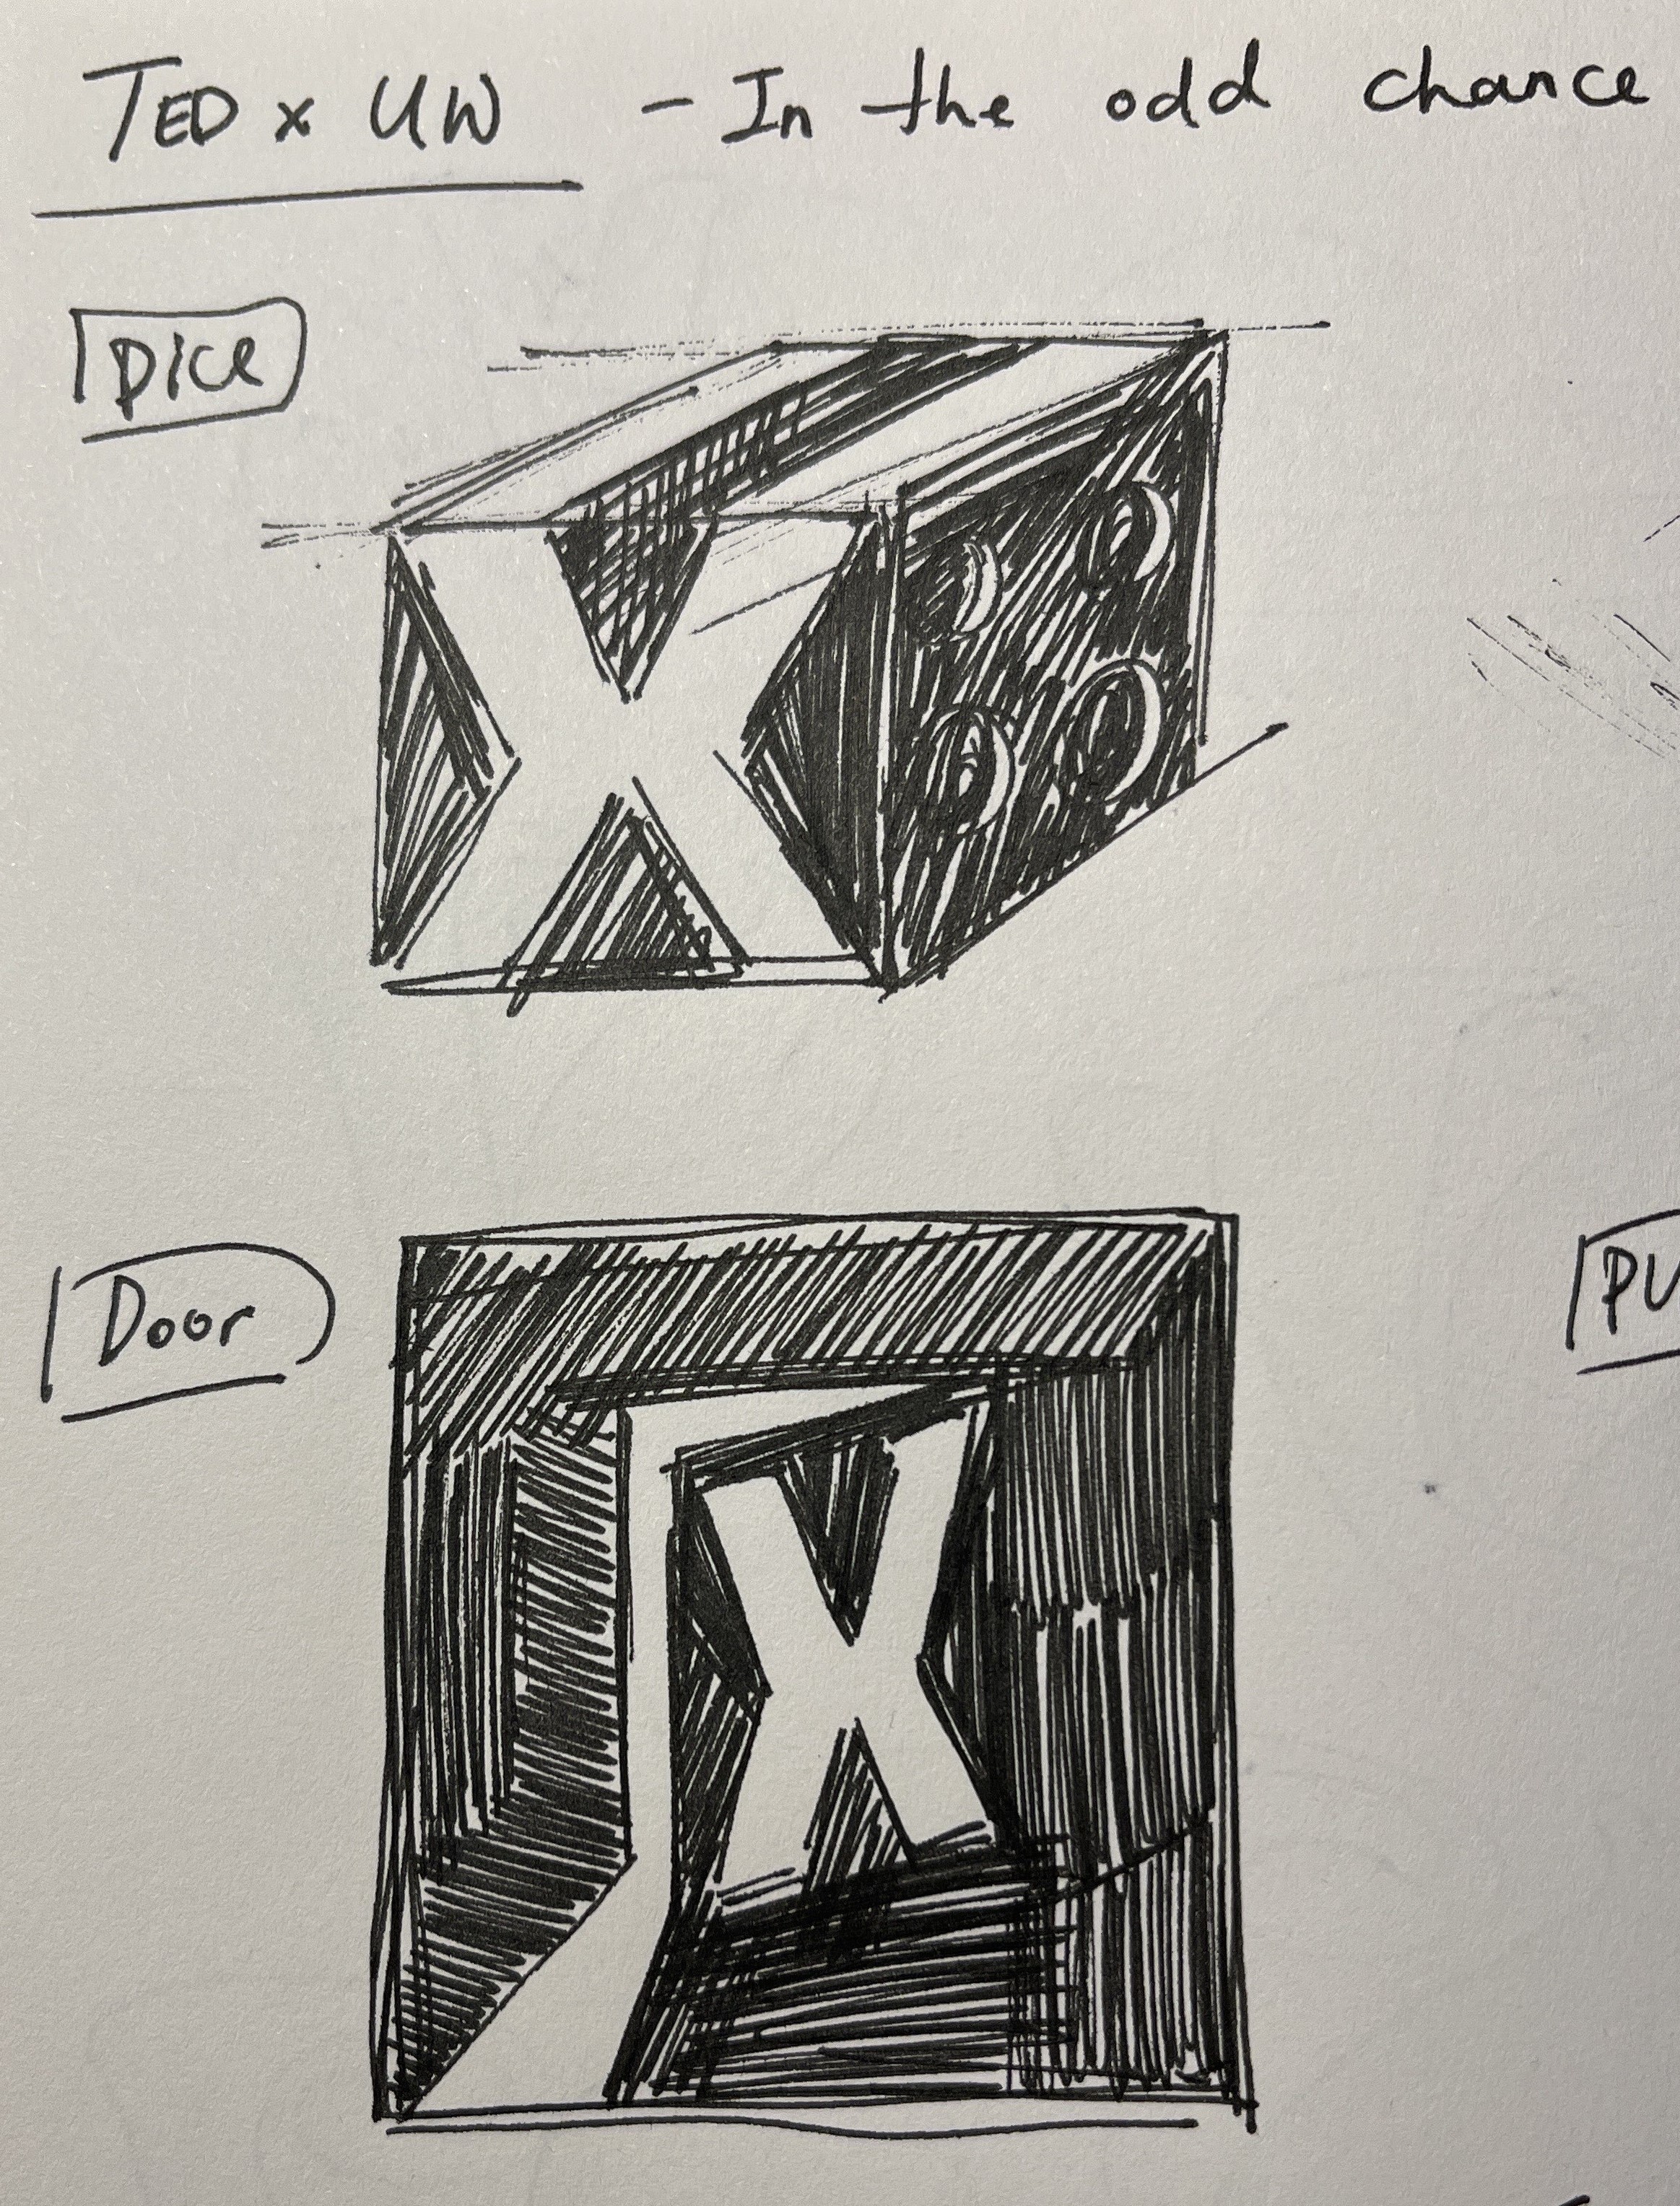 TED x UW - In the odd chance
Dice
X
Door
PU
X